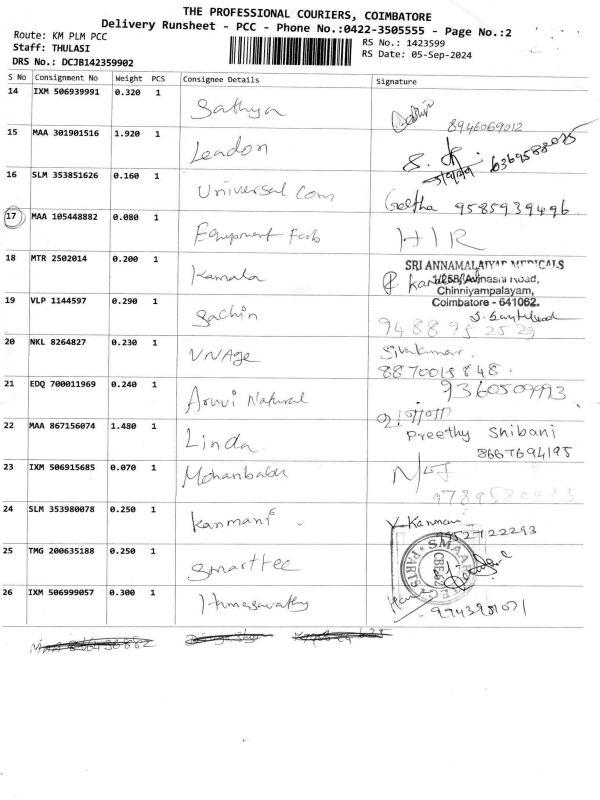 THE PROFESSIONAL COURIERS, COIMBATORE
Delivery Runsheet - PCC - Phone No.:0422-3505555 - Page No.:2
Route: KM PLM PCC
Staff: THULASI
DRS No.: DCJB142359902
RS No.: 1423599
RS Date: 05-Sep-2024
S No Consignment No Weight PCS Consignee Details Signature
14 IXM 506939991 0.320 1 Sathya
8946069012
15 MAA 301901516 1.920 1 Leadon
16 SLM 353851626 0.160 1 Universal Com Geetha 9585939496
17 MAA 105448882 0.080 1 Equipment Fab
18 MTR 2502014 0.200 1 Kamala
SRI ANNAMALAIYAR MEDICALS
Avinashi Road,
Chinniyampalayam,
Coimbatore - 641062.
19 VLP 1144597 0.290 1 Sachin
20 NKL 8264827 0.230 1 VNAge Sivakumar
8870019848
21 EDQ 700011969 0.240 1 Aruvi Natural 9360509993
22 MAA 867156074 1.480 1 Linda Preethy Shibani
8667694195
23 IXM 506915685 0.070 1 Mohanbabu
24 SLM 353980078 0.250 1 Kanmani
25 TMG 200635188 0.250 1 Smarttec
26 IXM 506999057 0.300 1